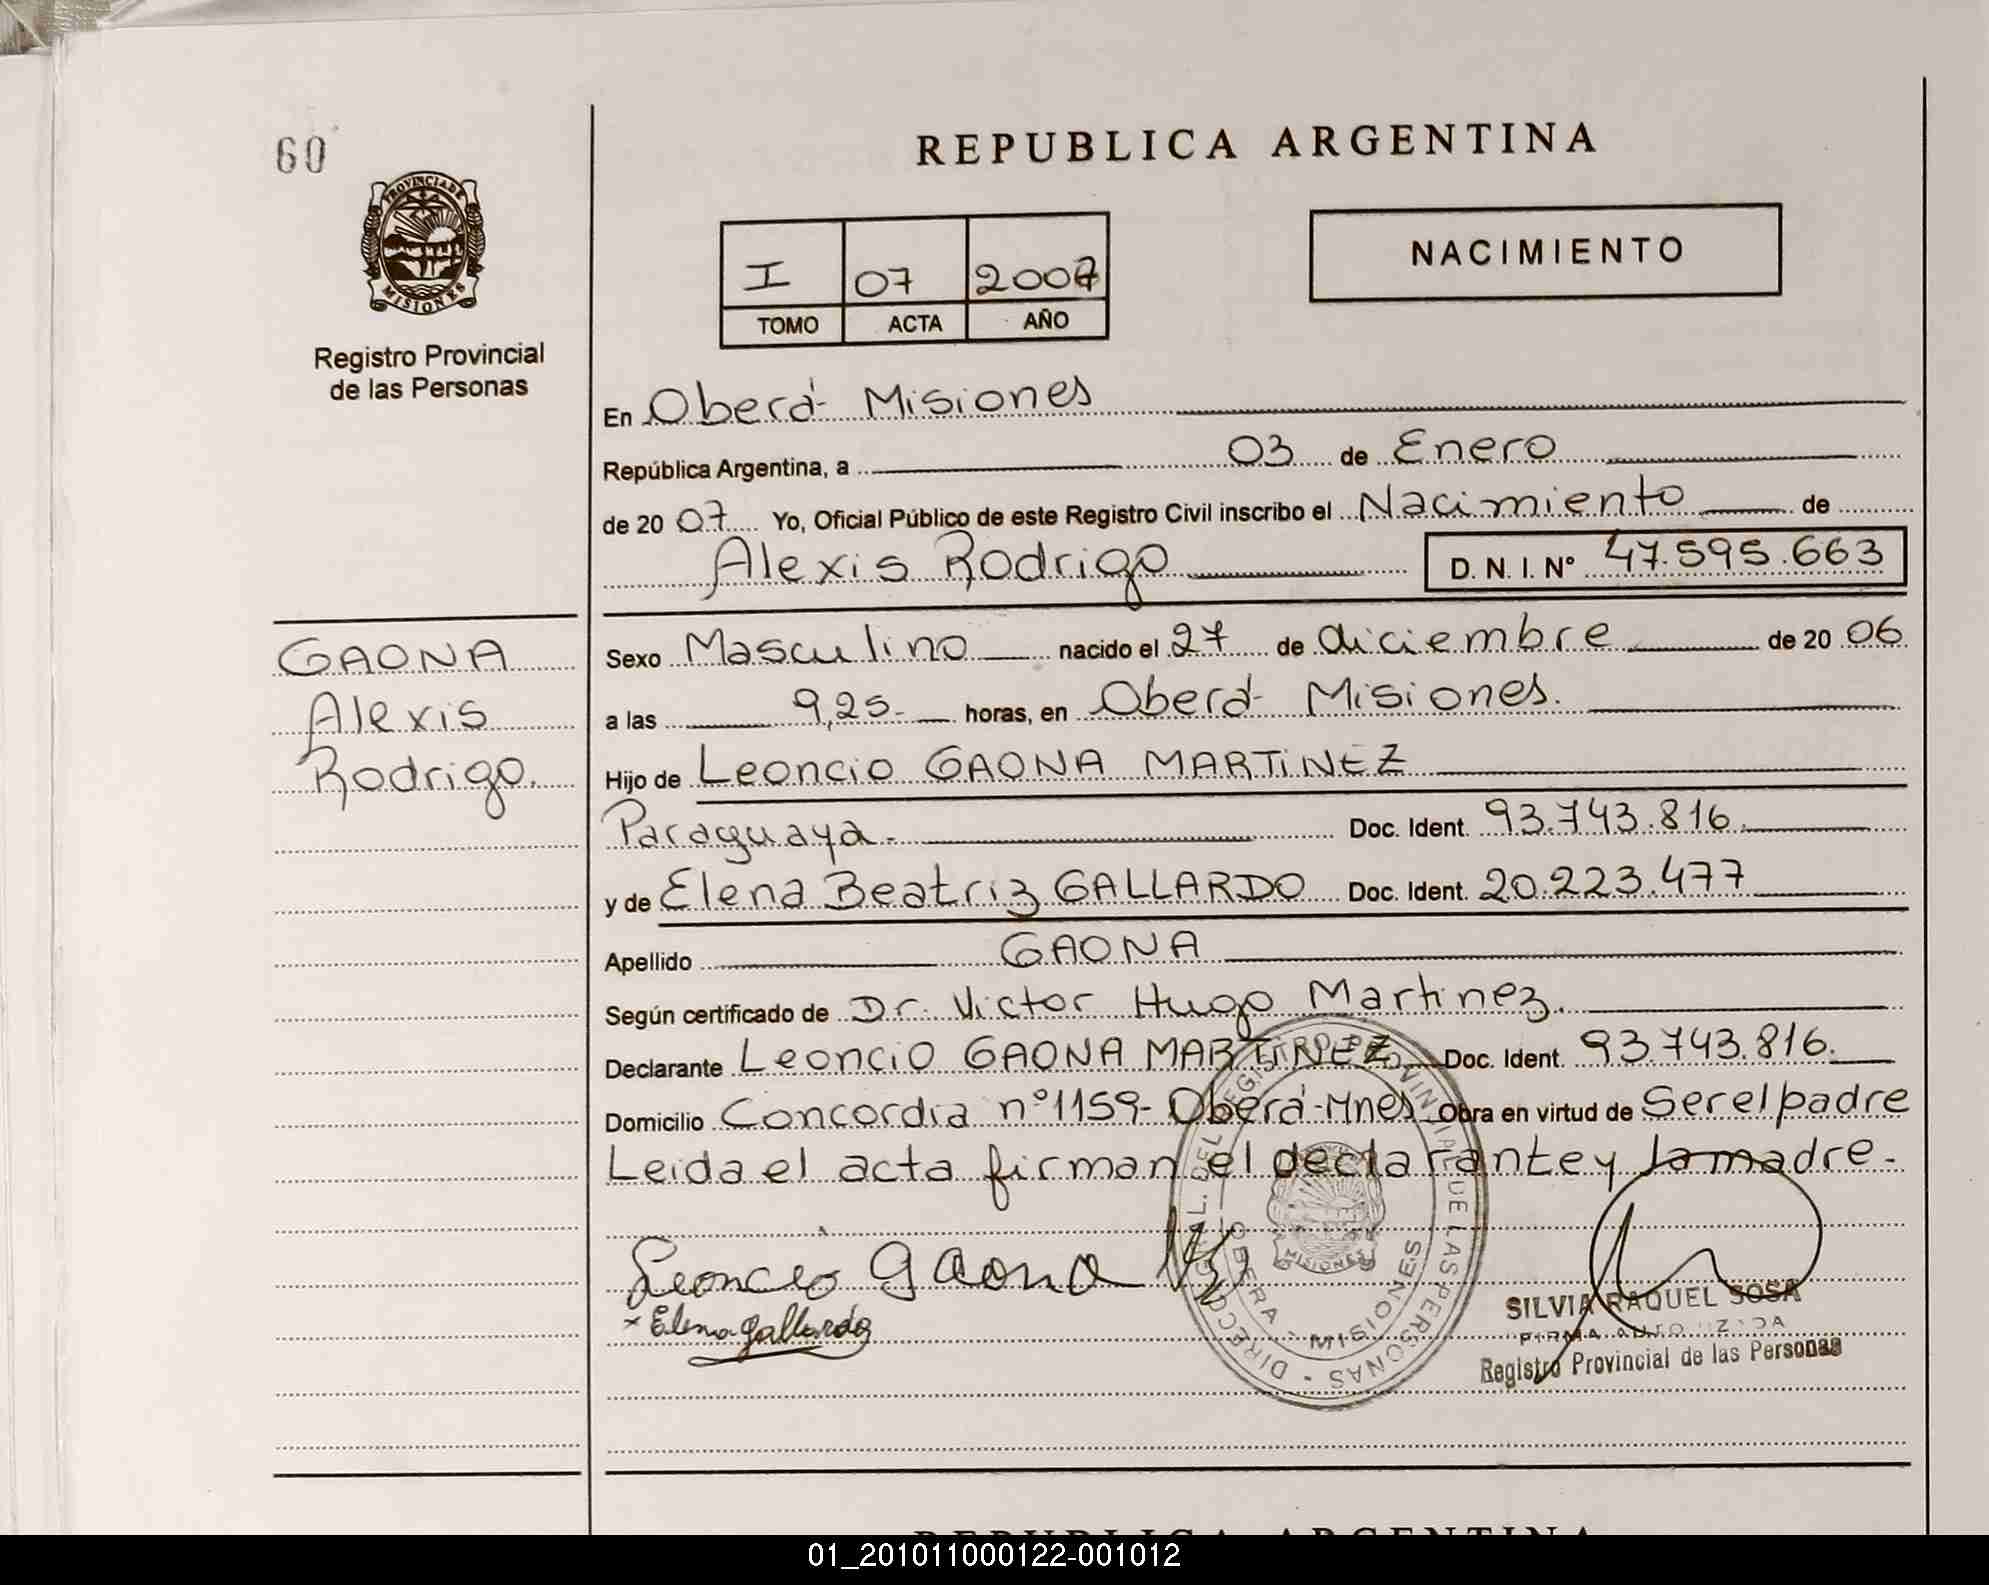 60
PROVINCIA DE
MISIONES
Registro Provincial
de las Personas
REPUBLICA ARGENTINA
I 07 2007
TOMO ACTA AÑO
NACIMIENTO
En Oberá- Misiones
República Argentina, a 03 de Enero
de 20 07 Yo, Oficial Público de este Registro Civil inscribo el Nacimiento de
Alexis Rodrigo D. N. I. N° 47.595.663
GAONA
Alexis
Rodrigo.
Sexo Masculino nacido el 27 de diciembre de 20 06
a las 9,25- horas, en Oberá- Misiones.
Hijo de Leoncio GAONA MARTiNEZ
Paraguaya- Doc. Ident. 93.743.816.
y de Elena Beatriz GALLARDO Doc. Ident. 20.223.477
Apellido GAONA
Según certificado de Dr. Victor Hugo Martinez.
Declarante Leoncio GAONA MARTiNEZ Doc. Ident. 93.743.816.
Domicilio Concordia n°1159- Oberá-Mnes Obra en virtud de Ser el padre
Leida el acta firman el declarante y la madre-
Leoncio Gaona
x Elena Gallardo
DIRECC. GRAL. DEL REGISTRO PROVINCIAL DE LAS PERSONAS
OBERA - MISIONES
MISIONES
SILVIA RAQUEL SOSA
FIRMA AUTORIZADA
Registro Provincial de las Personas
REPUBLICA ARGENTINA
01_201011000122-001012